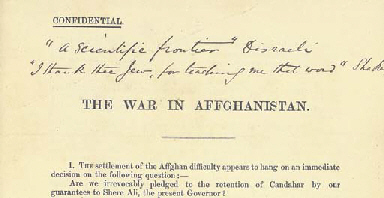 CONFIDENTIAL
"A Scientific frontier" Disraeli
"I thank thee Jew, for teaching me that word" Shak
THE WAR IN AFFGHANISTAN.
1. THE settlement of the Affghan difficulty appears to hang on an immediate
decision on the following question:—
Are we irrevocably pledged to the retention of Candahar by our
guarantees to Shere Ali, the present Governor?